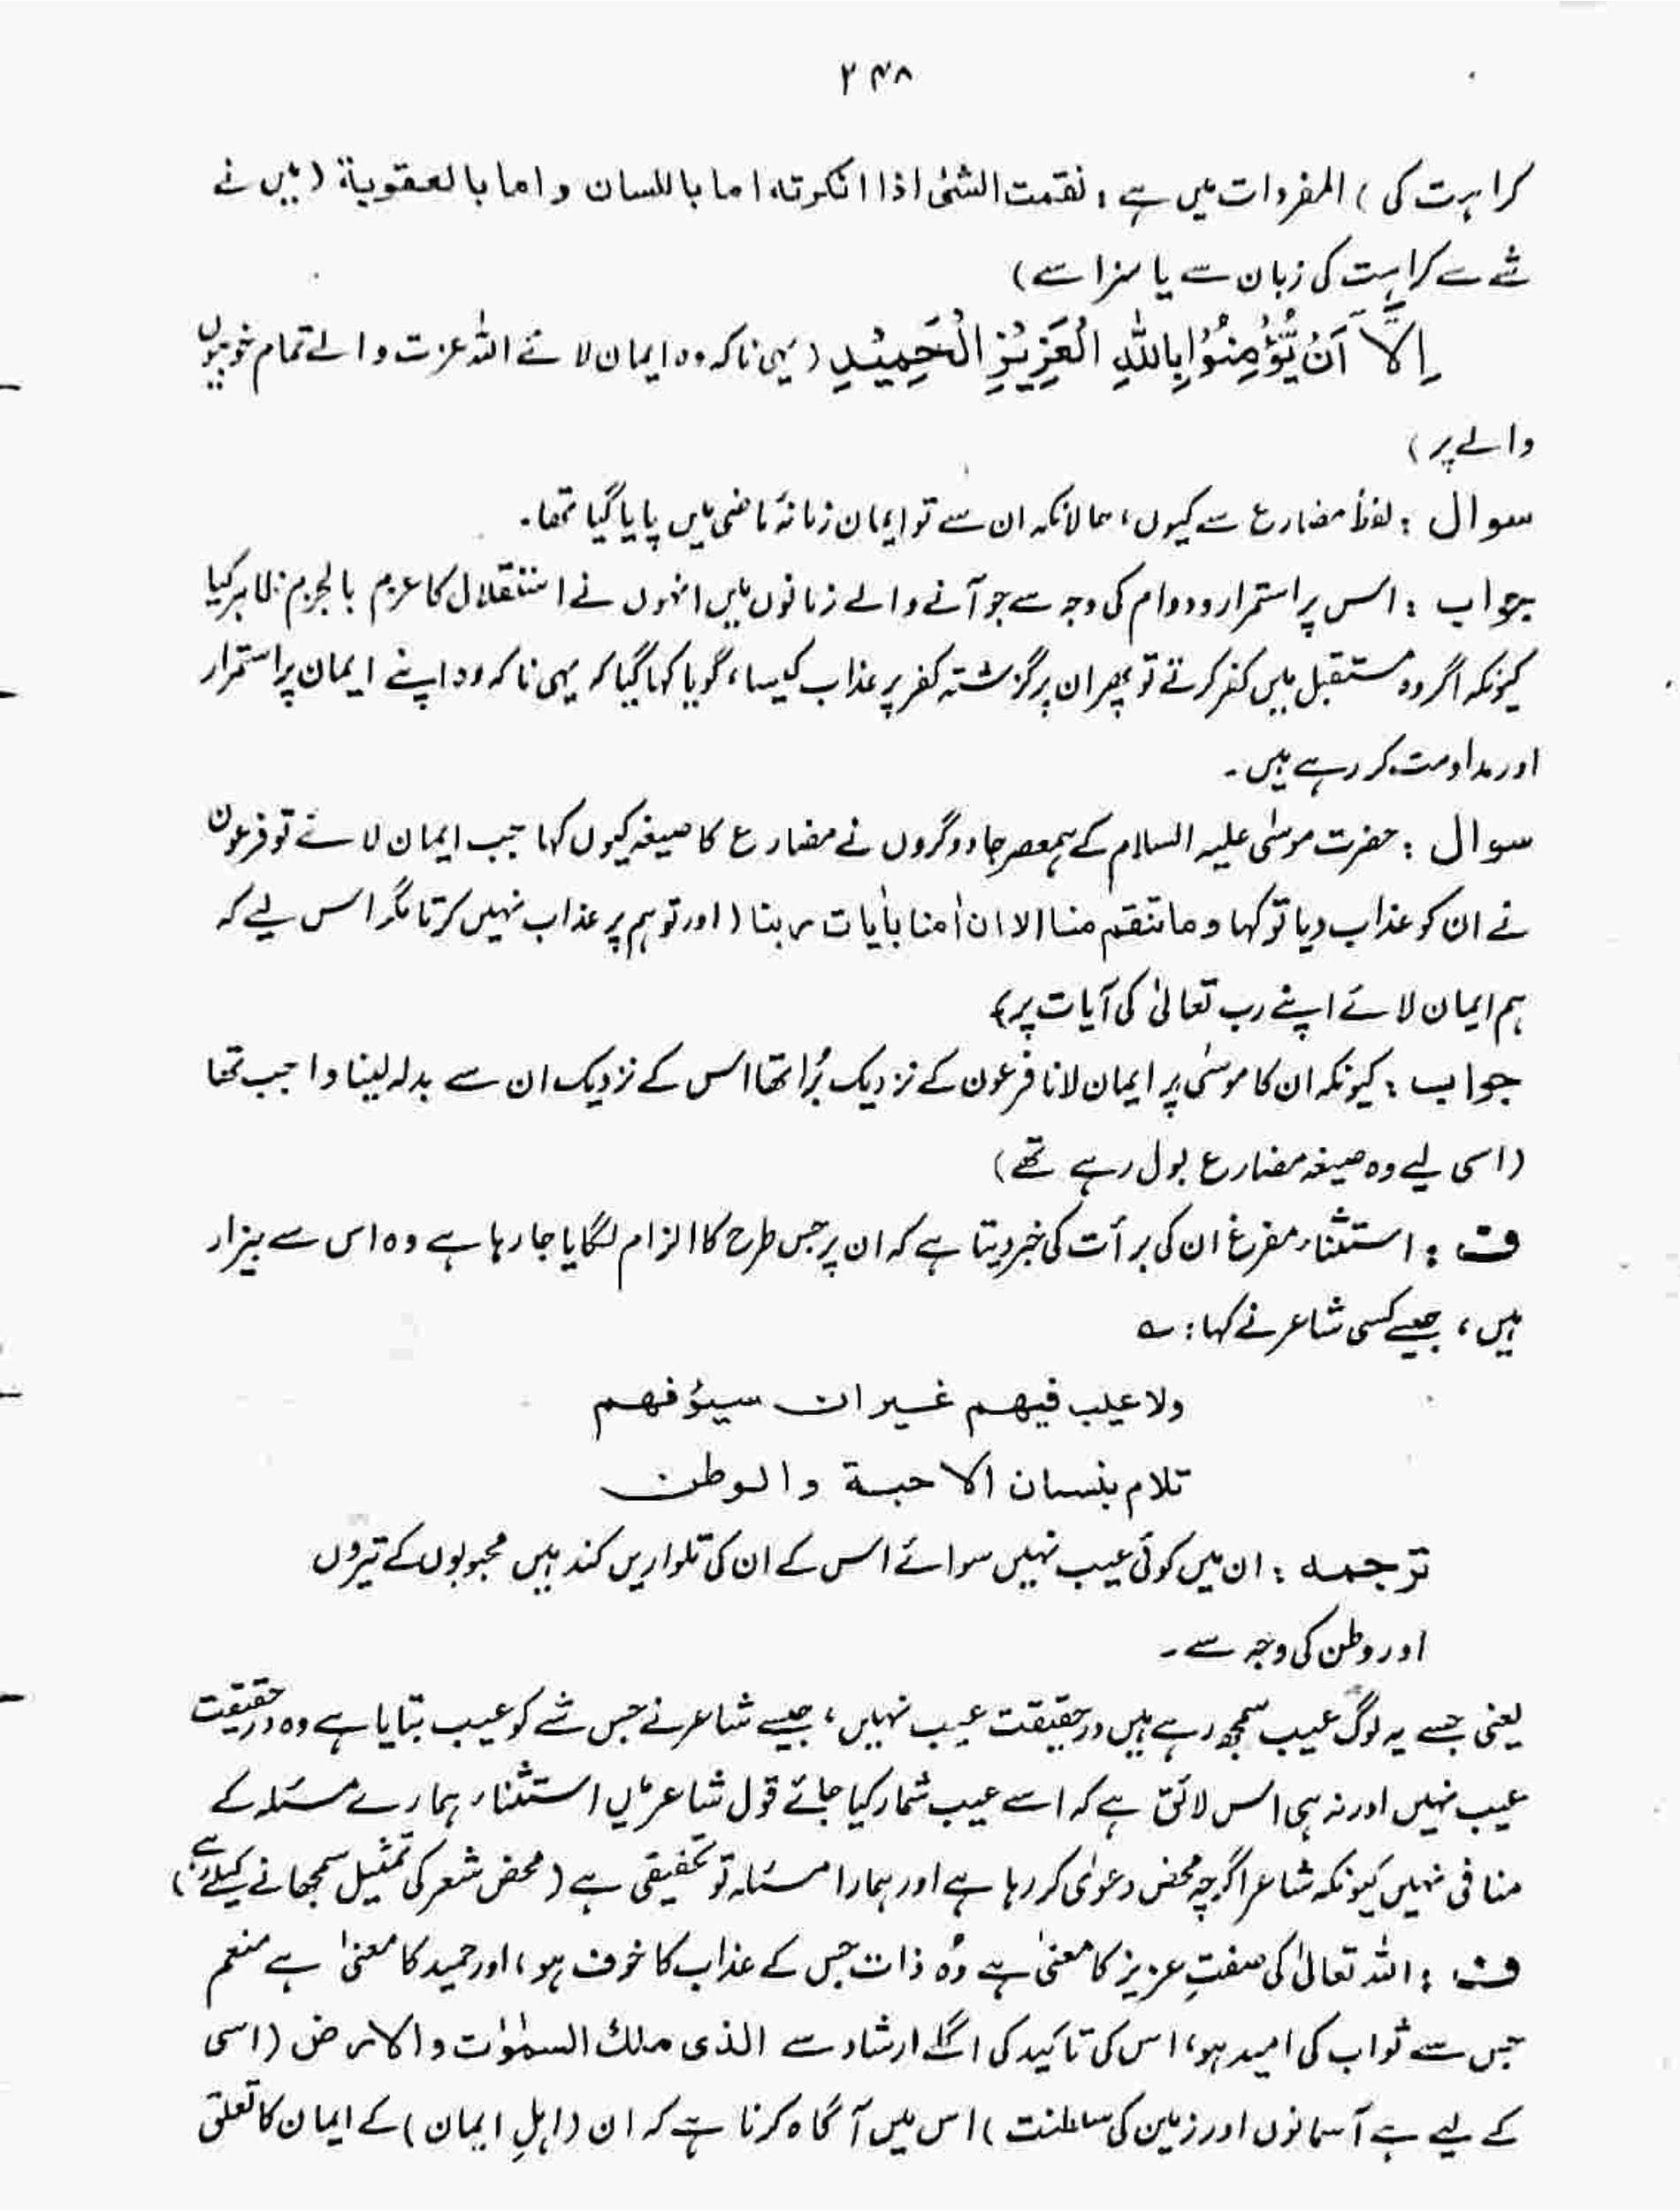 ۲۴۸
کراہت کی) المفردات میں ہے: نقمت الشئ اذا انکرتہ اما باللسان و اما بالعقوبة (میں نے
شے سے کراہت کی زبان سے یا سزا سے)
اِلَّآ اَنْ یُّؤْمِنُوْا بِاللّٰہِ الْعَزِیْزِ الْحَمِیْدِ (یہی نا کہ وہ ایمان لائے اللہ عزت والے تمام خوبیوں
والے پر)
سوال: لفظ مضارع سے کیوں، حالانکہ ان سے تو ایمان زمانۂ ماضی میں پایا گیا تھا۔
جواب: اس پر استمرار و دوام کی وجہ سے جو آنے والے زمانوں میں انہوں نے استقلال کا عزم بالجزم ظاہر کیا
کیونکہ اگر وہ مستقبل میں کفر کرتے تو پھر ان پر گزشتہ کفر پر عذاب کیسا، گویا کہا گیا کہ یہی نا کہ وہ اپنے ایمان پر استمرار
اور مداومت کر رہے ہیں۔
سوال: حضرت موسٰی علیہ السلام کے ہمعصر جادوگروں نے مضارع کا صیغہ کیوں کہا جب ایمان لائے تو فرعون
نے ان کو عذاب دیا تو کہا و ما تنقم منا الا ان اٰمنا باٰیات ربنا (اور تو ہم پر عذاب نہیں کرتا مگر اس لیے کہ
ہم ایمان لائے اپنے رب تعالیٰ کی آیات پر)
جواب: کیونکہ ان کا موسٰی پر ایمان لانا فرعون کے نزدیک بُرا تھا اس کے نزدیک ان سے بدلہ لینا واجب تھا
(اسی لیے وہ صیغہ مضارع بول رہے تھے)
ف: استثناء مفرغ ان کی برأت کی خبر دیتا ہے کہ ان پر جس طرح کا الزام لگایا جا رہا ہے وہ اس سے بیزار
ہیں، جیسے کسی شاعر نے کہا: ؎
ولا عیب فیہم غیر ان سیوٴفہم
تلام بنسان الاحبة والوطن
ترجمہ: ان میں کوئی عیب نہیں سوائے اس کے ان کی تلواریں کند ہیں محبوبوں کے تیروں
اور وطن کی وجہ سے۔
یعنی جسے یہ لوگ عیب سمجھ رہے ہیں درحقیقت عیب نہیں، جیسے شاعر نے جس شے کو عیب بتایا ہے وہ درحقیقت
عیب نہیں اور نہ ہی اس لائق ہے کہ اسے عیب شمار کیا جائے قول شاعر میں استثناء ہمارے مسئلہ کے
منافی نہیں کیونکہ شاعر اگرچہ محض دعوٰی کر رہا ہے اور ہمارا مسئلہ تو تحقیقی ہے (محض شعر کی تمثیل سمجھانے کیلئے ہے)
ف: اللہ تعالیٰ کی صفتِ عزیز کا معنیٰ ہے وُہ ذات جس کے عذاب کا خوف ہو، اور حمید کا معنیٰ ہے منعم
جس سے ثواب کی امید ہو، اس کی تاکید کی اگلے ارشاد سے الذی ملک السمٰوٰت والارض (اسی
کے لیے ہے آسمانوں اور زمین کی سلطنت) اس میں آگاہ کرنا ہے کہ ان (اہلِ ایمان) کے ایمان کا تعلق